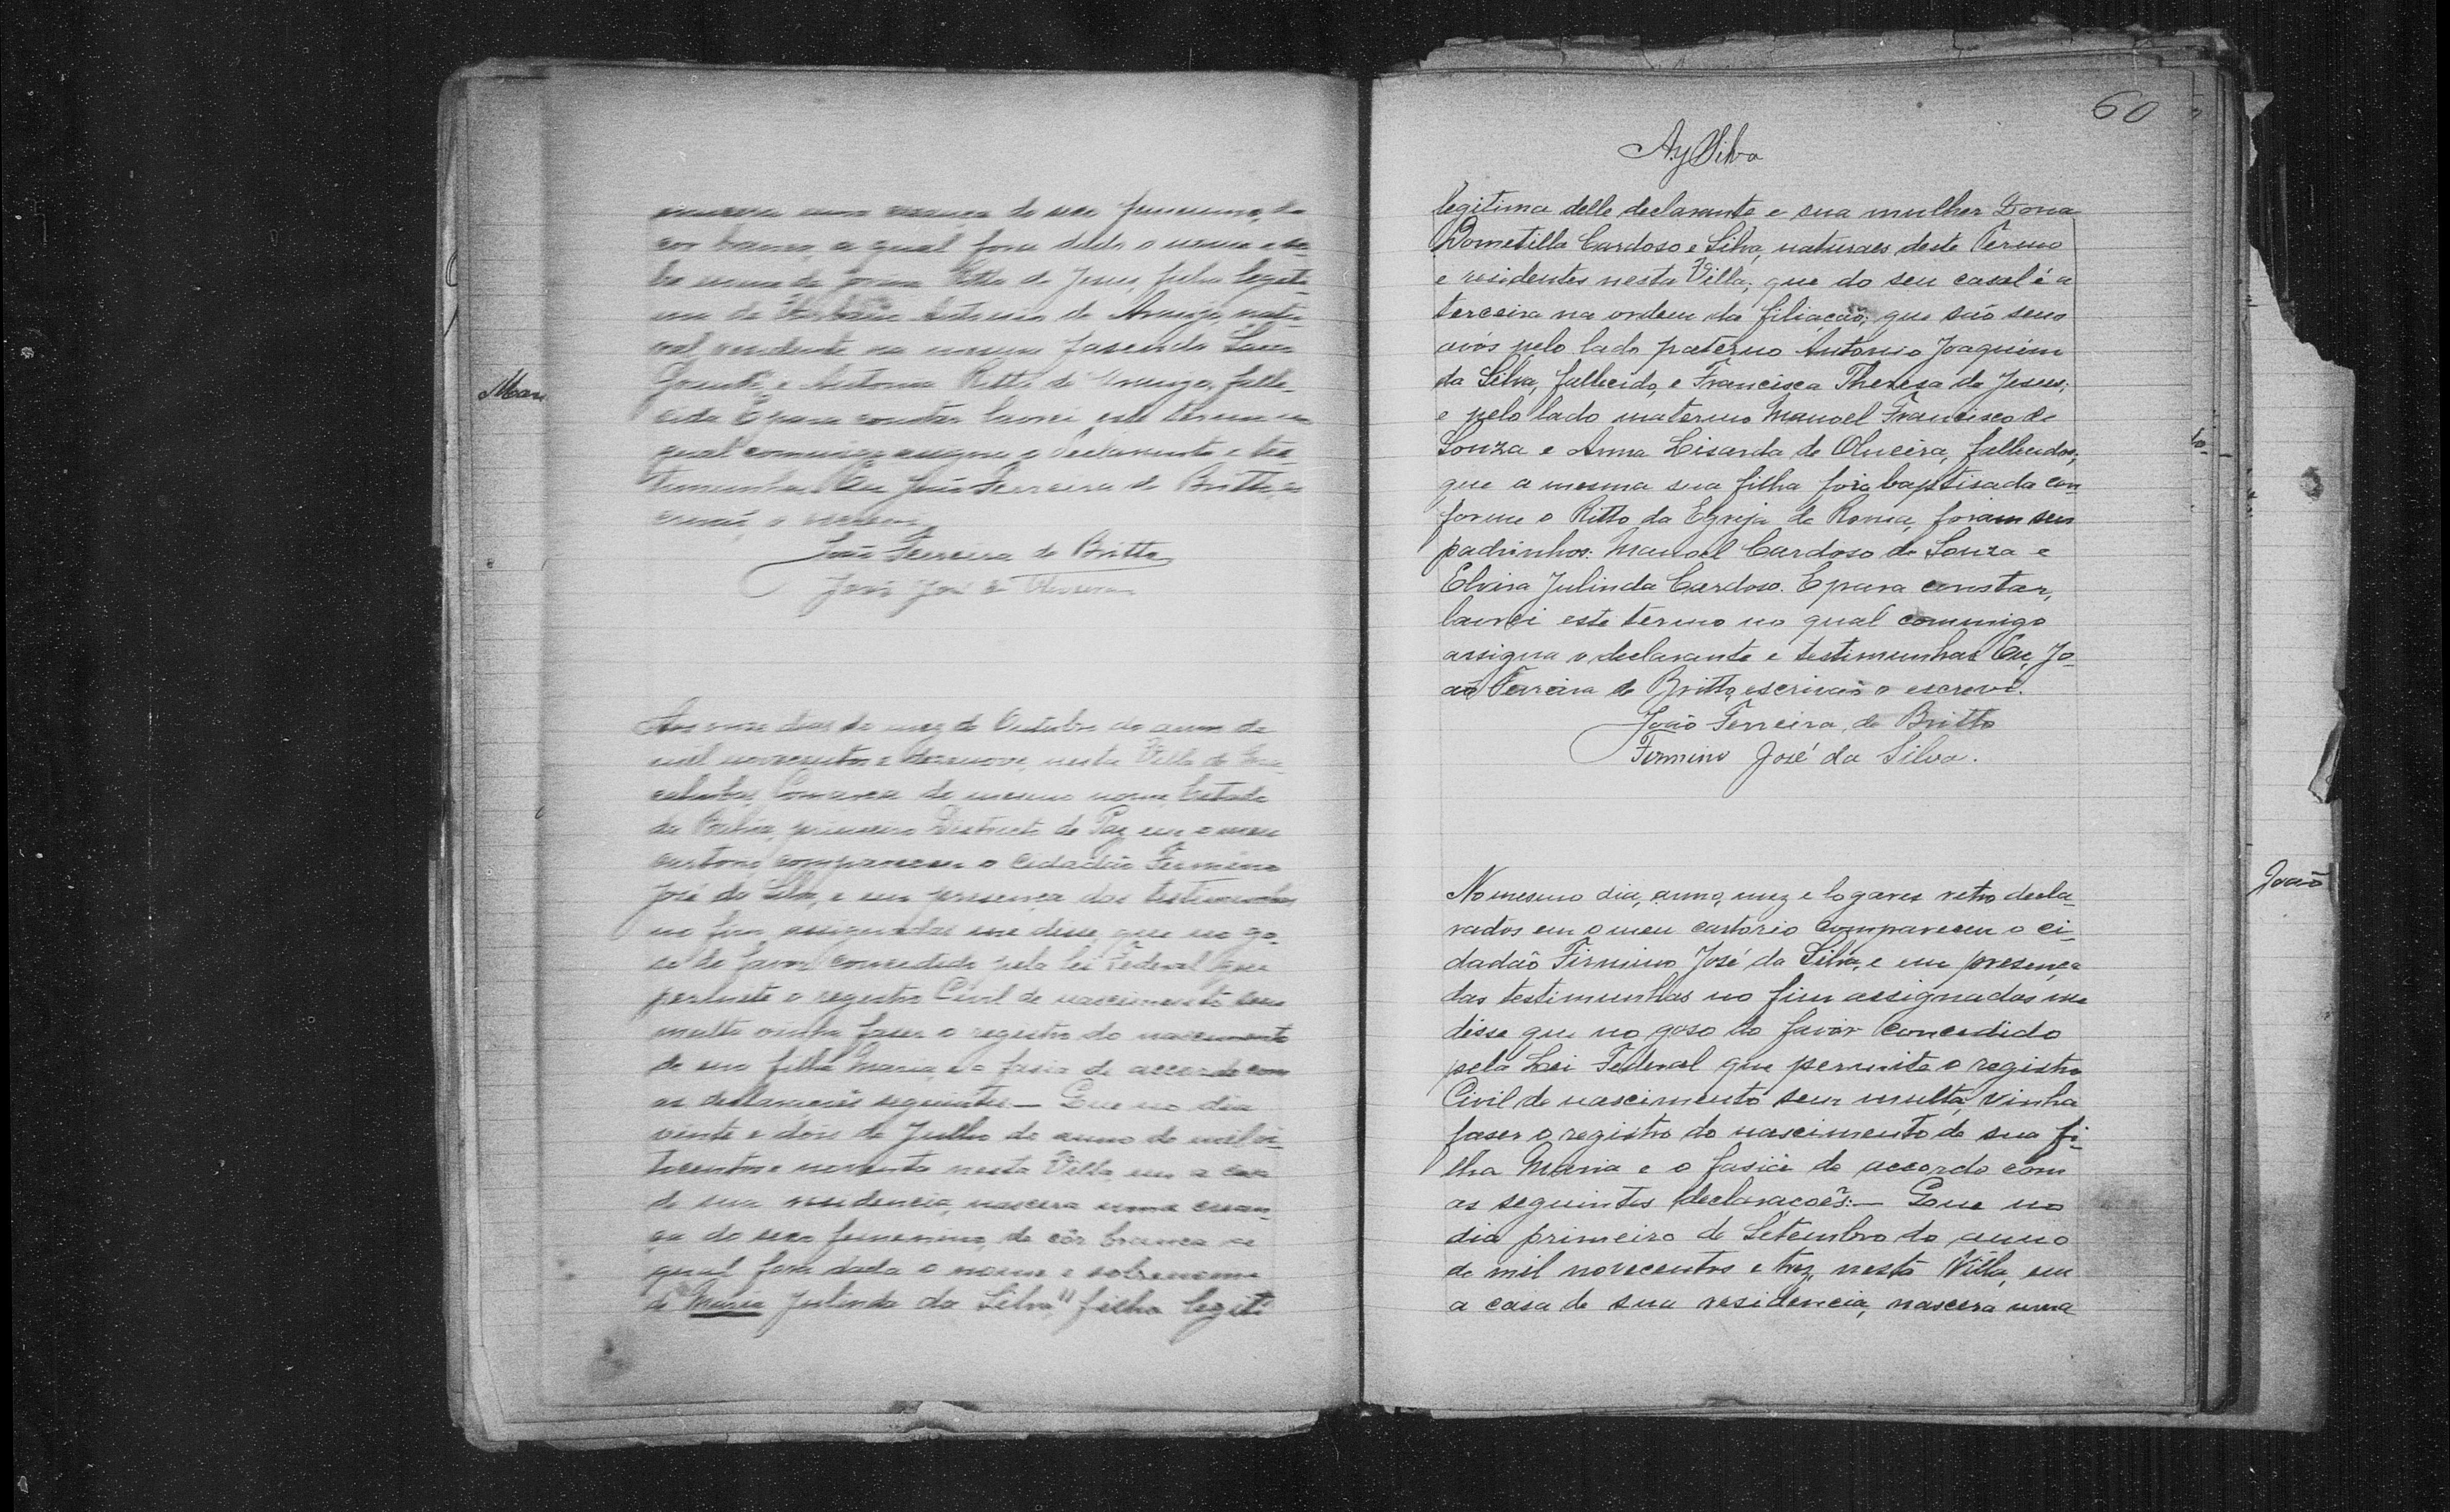 uma criança do sexo femenino, de
cor branca, a qual fora dado o nome e so-
bre nome de Ritta de Jesus, filha legiti-
ma de Antonio de Araujo, natu-
ral residente na mesma fasenda Lagoa
Grande, e Antonia Ritta de Araujo, falle-
cida. E para constar lavrei este termo no
qual commigo assigna o declarante e tes-
timunhas. Eu João Ferreira de Britto, es-
crivão, o escrevi.
João Ferreira de Britto
José José de Oliveira
Mari
Aos onze dias do mez de Outubro do anno de
mil novecentos e dezenove, nesta Villa de Ma-
cahubas, Comarca do mesmo nome, Estado
da Bahia, primeiro Districto de Paz, em o meu
cartorio compareceu o cidadão Firmino
José da Silva, e em presença das testimunhas
no fim assignadas me disse, que no go-
so do favor concedido pela lei Federal que
permite o registro Civil de nascimento sem
multa vinha faser o registro do nascimento
de sua filha Maria, e o fasia de accordo com
as declarações seguintes — Que no dia
vinte e dois de Julho do anno de mil oi-
tocentos e noventa nesta Villa, em a casa
de sua residencia, nascera uma crian-
ça do sexo femenino, de côr branca a
qual fora dada o nome e sobrenome
de "Maria Julinda da Silva" filha legiti
60
Ay Silva
legitima delle declarante e sua mulher Dona
Dometilla Cardoso e Silva, naturaes deste Termo
e residentes nesta Villa; que do seu casal é a
terceira na ordem da filiação; que são seus
avós pelo lado paterno Antonio Joaquim
da Silva, fallecido, e Francisca Theresa de Jesus;
e pelo lado materno Manoel Francisco de
Souza e Anna Lisarda de Oliveira, fallecidos;
que a mesma sua filha fora baptisada con
forme o Ritto da Egreja de Roma, foram seus
padrinhos: Manoel Cardoso de Souza e
Elvira Julinda Cardoso. E para constar,
lavrei este termo no qual commigo
assigna o declarante e testimunhas. Eu, Jo-
aõ Ferreira de Britto, escrivão o escrevi.
João Ferreira de Britto
Firmino José da Silva.
No mesmo dia, anno, mez e logares retro decla-
rados em o meu cartorio compareceu o ci-
dadão Firmino José da Silva, e em presença
das testimunhas no fim assignadas me
disse que no goso do favor concedido
pela Lei Federal que permite o registro
Civil de nascimento sem multa, vinha
faser o registro do nascimento de sua fi-
lha Maria e o fasia de accordo com
as seguintes declarações:— Que no
dia primeiro de Setembro do anno
de mil novecentos e trez, nesta Villa, em
a casa de sua residencia, nascera uma
João